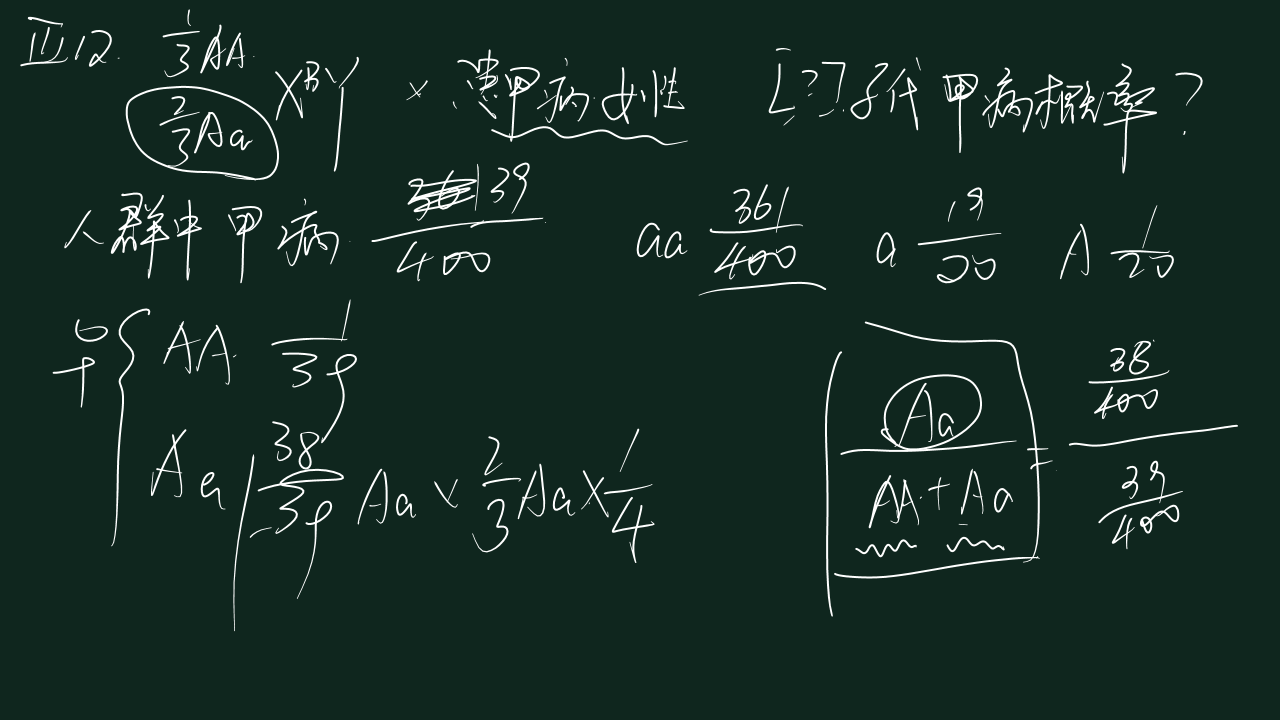 Ⅲ12. 1/3 AA
2/3 Aa XᴮY × 患甲病女性 [?]子代甲病概率?
人群中甲病 39/400 aa 361/400 a 19/20 A 1/20
♀ { AA 1/39
Aa 38/39 Aa × 2/3 Aa × 1/4
Aa/(AA+Aa) = (38/400)/(39/400)